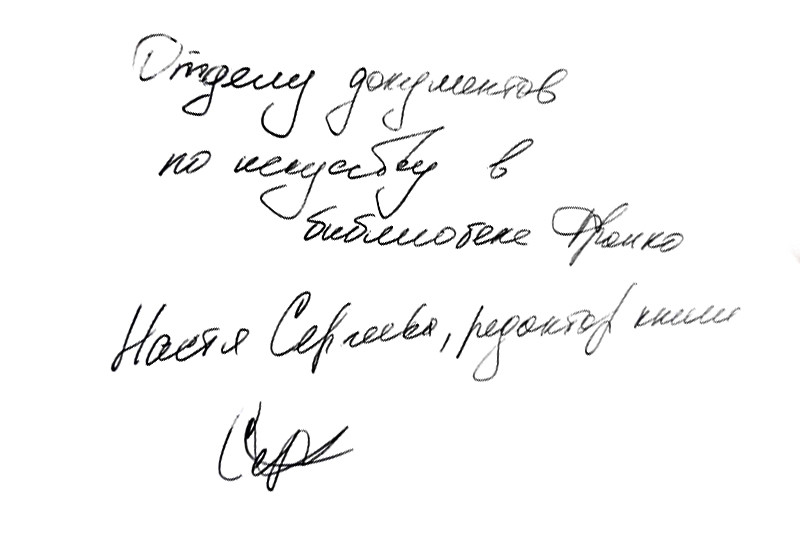 Отделу документов
по искусству в
библиотеке Франко
Настя Сергеева, редактор книги